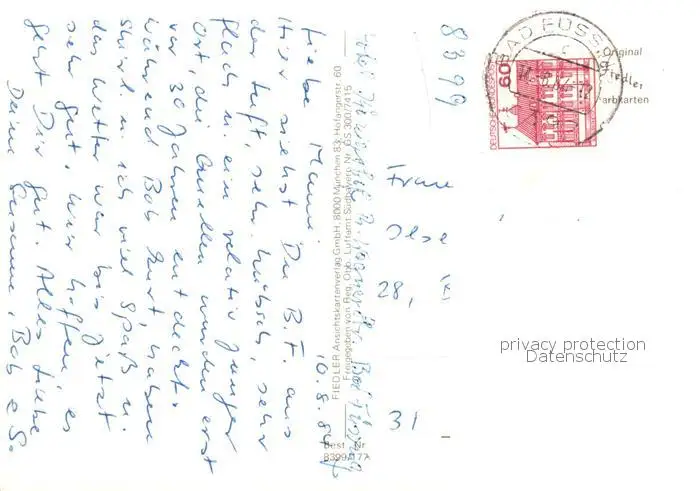 10.8.84
Liebe Mami!
Hier siehst Du B. F. aus
der Luft, sehr hübsch, sehr
flach u. ein relativ junger
Ort, die Quellen wurden erst
vor 30 Jahren entdeckt.
während Bob kurt, haben
u. ich viel Spaß u.
das Wetter war bis jetzt
sehr gut. Wir hoffen, es
geht Dir gut. Alles Liebe
Deine Susanne, Bob &
FIEDLER Ansichtskartenverlag GmbH, 8000 München 83, Hofangerstr. 60
Freigegeben von Reg. Obb. Luftamt Südbayern, Nr. GS 300/7415
Best. Nr.
8399/177
8399
BAD FÜSSING
DEUTSCHE BUNDESPOST
60
Original
Fiedler
Farbkarten
Frau
Ilse
28,
31
privacy protection
Datenschutz